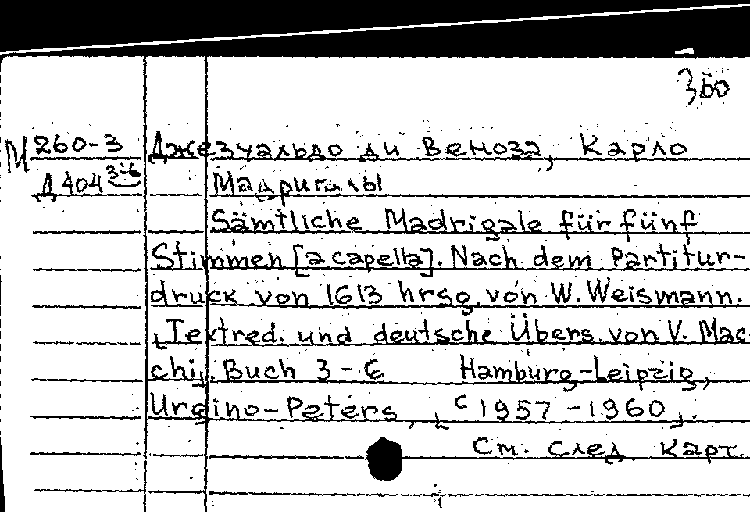 360
М 260-3 Джезуальдо ди Веноза, Карло
Д 404 3-6 Мадригалы
Sämtliche Madrigale für fünf
Stimmen [a capella]. Nach dem Partitur-
druck von 1613 hrsg. von W. Weismann.
[Textred. und deutsche Übers. von V. Mac-
chi]. Buch 3-6 Hamburg-Leipzig,
Urgino-Peters, [c 1957-1960].
См. след. карт